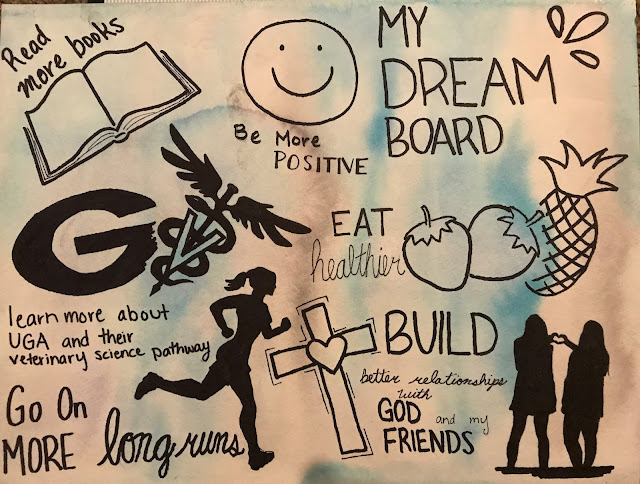 Read
more books
Be More
POSITIVE
MY
DREAM
BOARD
G
V
EAT
healthier
learn more about
UGA and their
veterinary science pathway
Go On
MORE long runs
BUILD
better relationships
with
GOD and my
FRIENDS